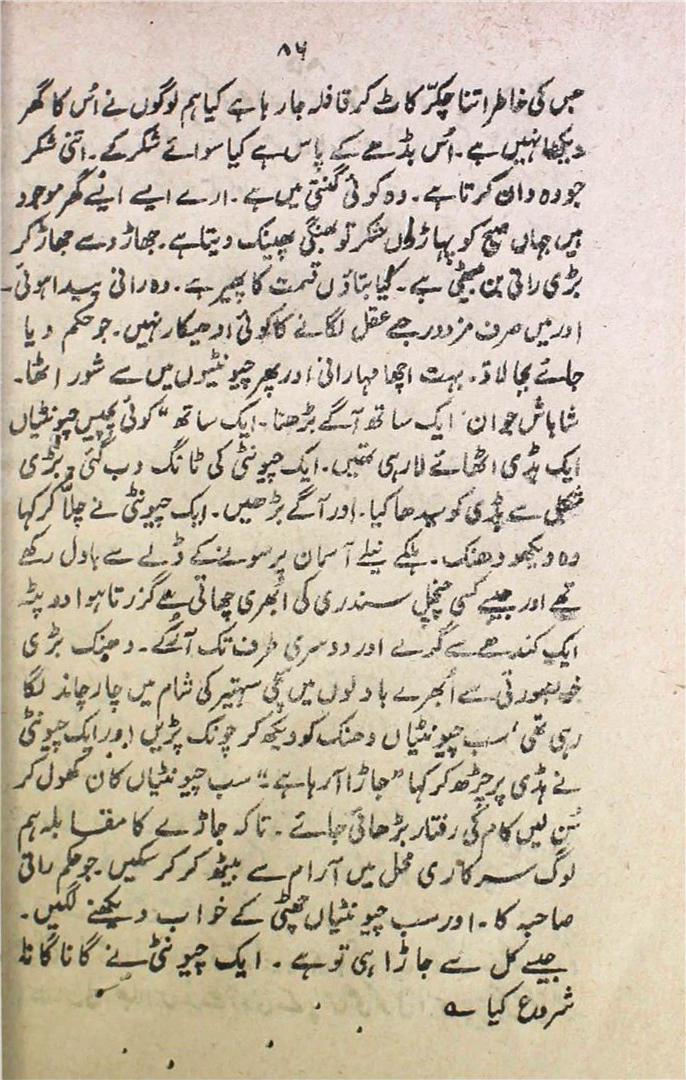 ۸۶
جس کی خاطر اتنا چکّر کاٹ کر قافلہ جا رہا ہے کیا ہم لوگوں نے اُس کا گھر
دیکھا نہیں ہے۔ اُس بڈھے کے پاس ہے کیا سوائے شکر کے۔ اتنی شکر
جو وہ دان کرتا ہے۔ وہ کوئی گنتی میں ہے۔ ارے ایسے ایسے گھر موجود
ہیں جہاں صبح کو پہاڑوں شکر تو بھنگی پھینک دیتا ہے۔ جھاڑو سے جھاڑ کر
بڑی رانی بن بیٹھی ہے۔ کیا بتاؤں قسمت کا پھیر ہے۔ وہ رانی پیدا ہوئی۔
اور میں صرف مزدور جسے عقل لگانے کا کوئی ادھیکار نہیں۔ جو حکم دیا
جائے بجا لاؤ۔ بہت اچھا مہارانی اور پھر چیونٹیوں میں سے شور اٹھا۔
شاباش جوان ایک ساتھ آگے بڑھنا۔ ایک ساتھ “ کوئی پچیس چیونٹیاں
ایک ہڈی اٹھائے لا رہی تھیں۔ ایک چیونٹی کی ٹانگ دب گئی بڑی
مشکل سے ہڈی کو سیدھا کیا۔ اور آگے بڑھیں۔ ایک چیونٹی نے چلاّ کر کہا
وہ دیکھو دھنک۔ ہلکے نیلے آسمان پر سونے کے ڈلے سے بادل رکھے
تھے اور جیسے کسی چنچل سندری کی اُبھری چھاتی سے گزرتا ہوا دوپٹہ
ایک کندھے سے گرے اور دوسری طرف تک آئے۔ دھنک بڑی
خوبصورتی سے اُبھرے بادلوں میں سجی ستمبر کی شام میں چار چاند لگا
رہی تھی، سب چیونٹیاں دھنک کو دیکھ کر چونک پڑیں اور ایک چیونٹی
نے ہڈی پر چڑھ کر کہا ”جاڑا آ رہا ہے“ سب چیونٹیاں کان کھول کر
سُن لیں کام کی رفتار بڑھائی جائے۔ تاکہ جاڑے کا مقابلہ ہم
لوگ سرکاری محل میں آرام سے بیٹھ کر کر سکیں جو حکم رانی
صاحبہ کا۔ اور سب چیونٹیاں چھٹی کے خواب دیکھنے لگیں۔
جیسے کل سے جاڑا ہی تو ہے۔ ایک چیونٹی نے گانا گانا
شروع کیا ؎